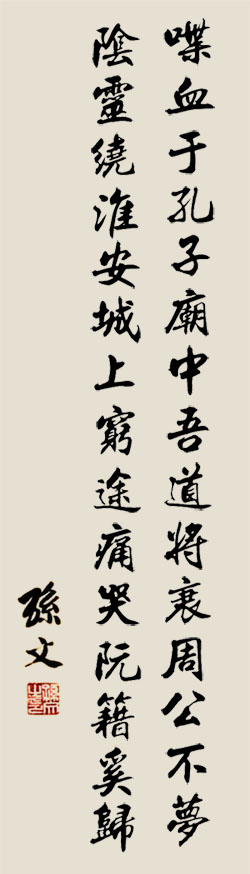 喋血于孔子廟中吾道將衰周公不夢
陰靈繞淮安城上窮途痛哭阮籍奚歸
孫文